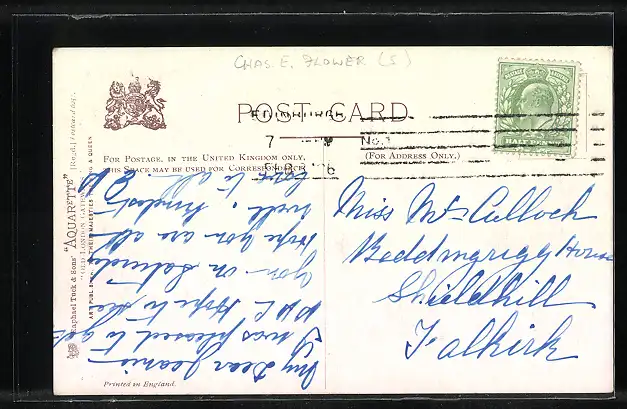 CHAS. E. FLOWER (S)
POST CARD
EDINBURGH
7
No. 1
06
FOR POSTAGE IN THE UNITED KINGDOM ONLY,
THIS SPACE MAY BE USED FOR CORRESPONDENCE
(FOR ADDRESS ONLY.)
POSTAGE REVENUE
HALF PENNY
Raphael Tuck & Sons' "AQUARETTE" [Regd.] Postcard
"OLD LONDON GATE
ART PUBLISHERS THEIR MAJESTIES THE KING & QUEEN
My Dear Jeanie
I was pleased to get
P.P.C. Hope to see
you on Saturday
Hope you are all
well. Kindest
love to all
Miss McCulloch
Beddmgrigg House
Shieldhill
Falkirk
Printed in England.